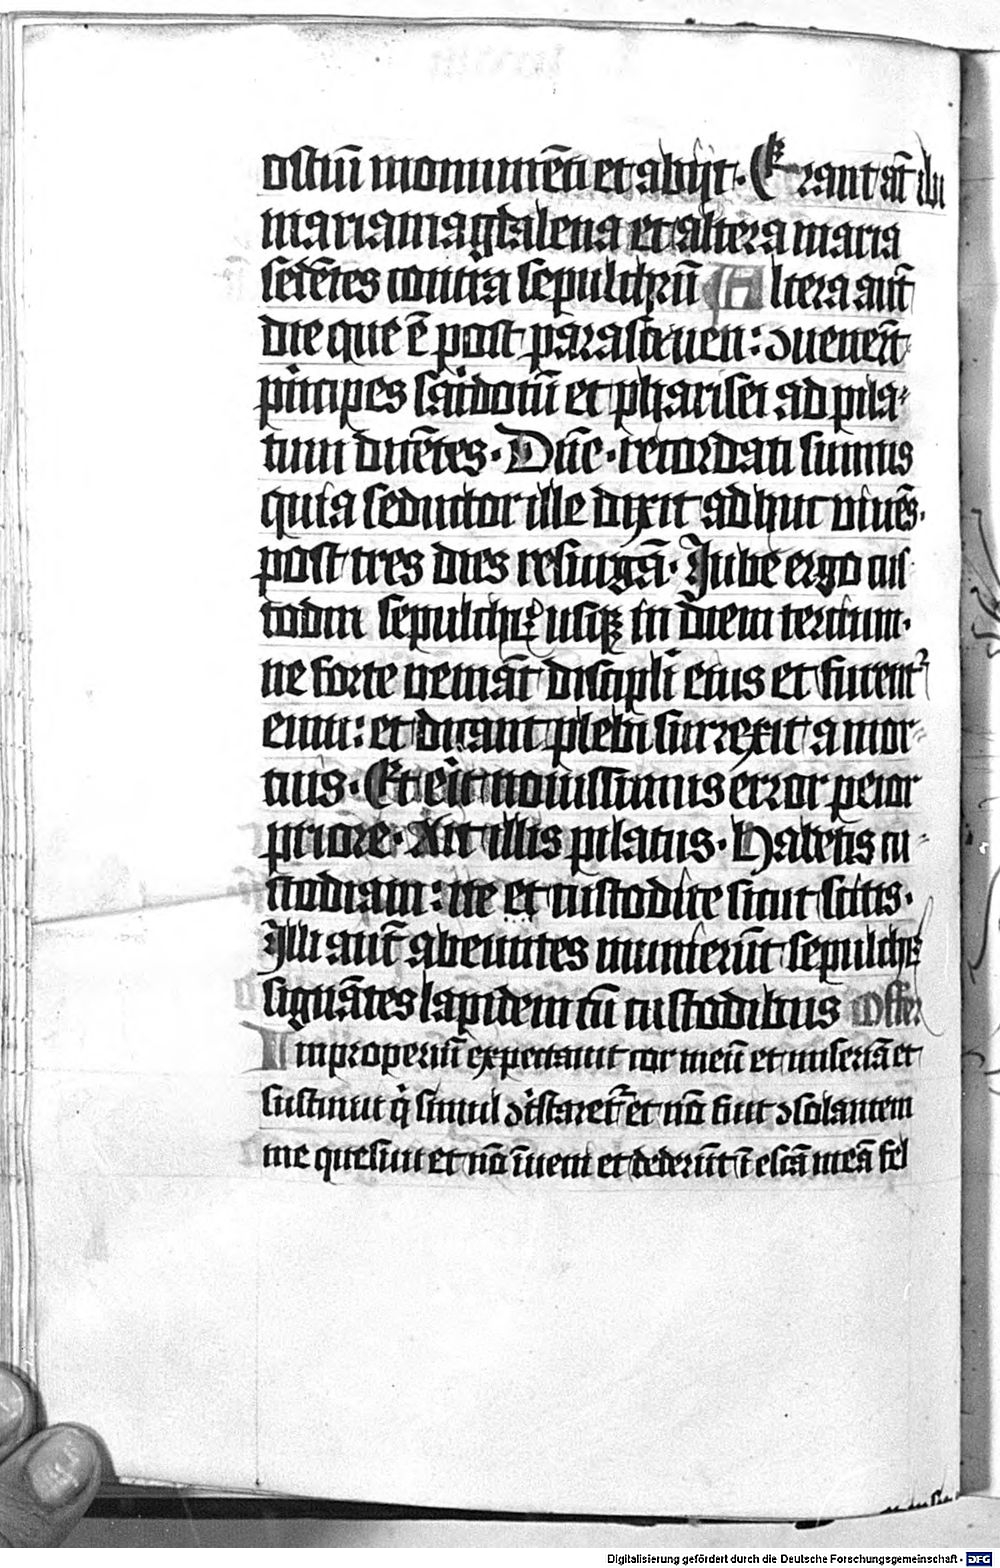 ostiū monumēti et abijt. Erant āt ibi
maria magdalena et altera maria
sedētes contra sepulchrū Altera aūt
die que ē post parasceuen: ↄuenerūt
pͥncipes sac̓dotū et pharisei ad pila-
tum dicētes. Dn̄e. recordati sumus
quia seductor ille dixit adhuc viuēs.
post tres dies resurgā. Jube ergo cus
todiri sepulchrꝫ usqꝫ in diem tercium.
ne forte veniāt discipli eius et furent᷑
eum: et dicant plebi surrexit a mor-
tuis. Et eīt nouissimus error peior
priore. Ait illis pilatus. Habetis cu-
stodiam: ite et custodite sicut scitis.
Illi aūt abeuntes munierūt sepulchrꝫ
signātes lapidem cū custodibus Offer
Improperiū expectauit cor meū et miseriā et
sustinui qͥ simul ↄtͥstaret᷑ et nō fuit ↄsolantem
me quesiui et nō īueni et dederūt ī escā meā fel
Digitalisierung gefördert durch die Deutsche Forschungsgemeinschaft - DFG